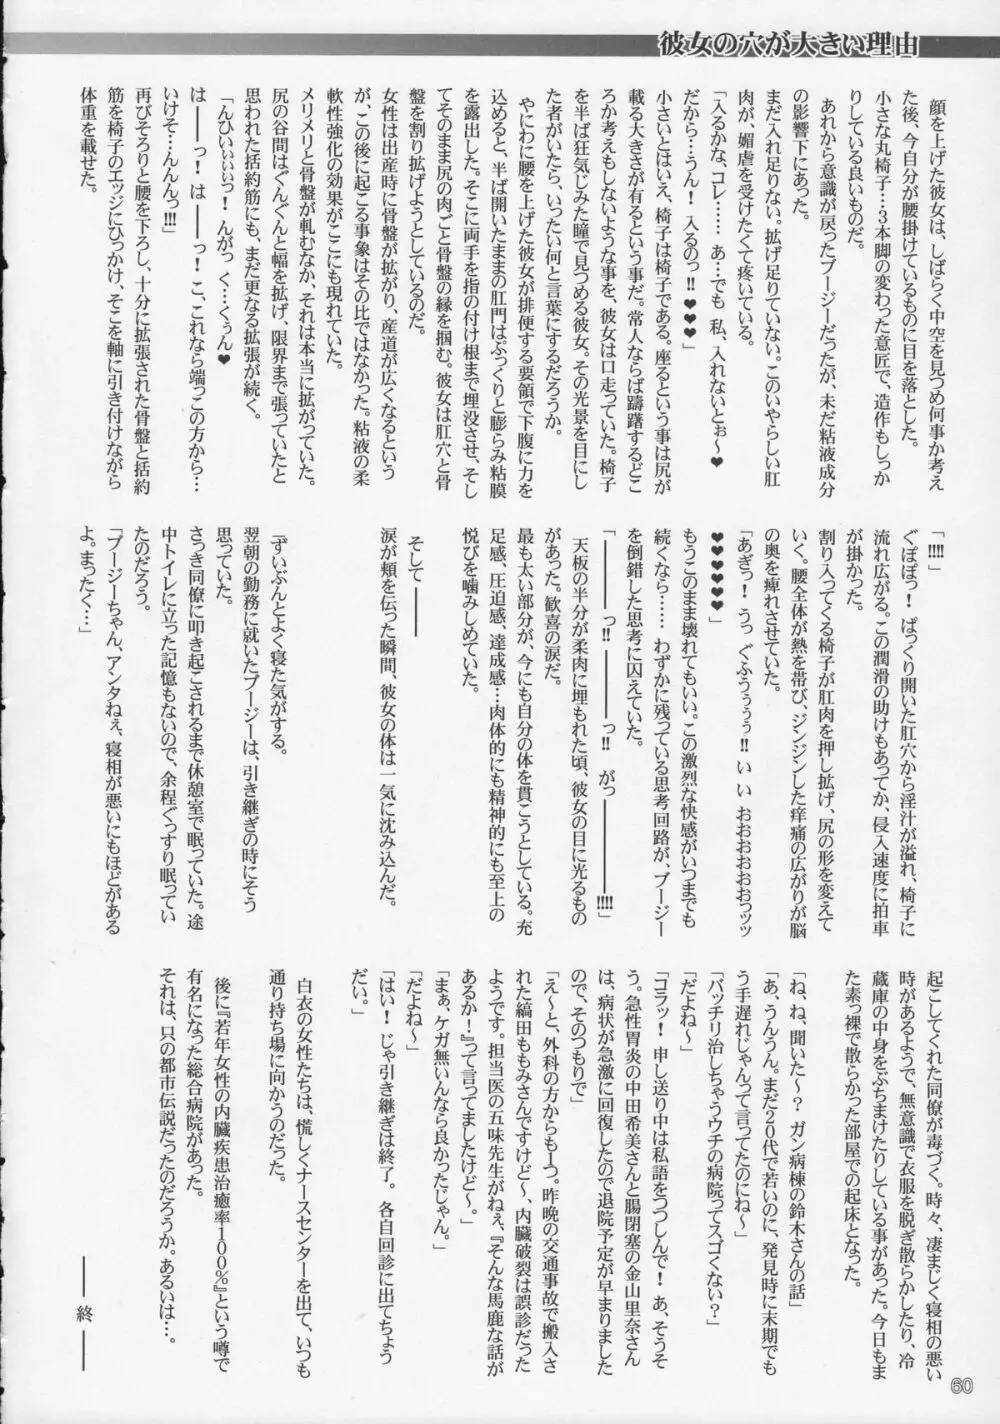 彼女の穴が大きい理由
顔を上げた彼女は、しばらく中空を見つめ何事か考え
た後、今自分が腰掛けているものに目を落とした。
小さな丸椅子…3本脚の変わった意匠で、造作もしっか
りしている良いものだ。
あれから意識が戻ったブージーだったが、未だ粘液成分
の影響下にあった。
まだ入れ足りない。拡げ足りていない。このいやらしい肛
肉が、媚虐を受けたくて疼いている。
「入るかな、コレ…… あ…でも 私、入れないとぉ～♥
だから…うん！ 入るのっ!!♥♥♥」
小さいとはいえ、椅子は椅子である。座るという事は尻が
載る大きさが有るという事だ。常人ならば躊躇するどこ
ろか考えもしないような事を、彼女は口走っていた。椅子
を半ば狂気じみた瞳で見つめる彼女。その光景を目にし
た者がいたら、いったい何と言葉にするだろうか。
やにわに腰を上げた彼女が排便する要領で下腹に力を
込めると、半ば開いたままの肛門はぷっくりと膨らみ粘膜
を露出した。そこに両手を指の付け根まで埋没させ、そし
てそのまま尻の肉ごと骨盤の縁を掴む。彼女は肛穴と骨
盤を割り拡げようとしているのだ。
女性は出産時に骨盤が拡がり、産道が広くなるという
が、この後に起こる事象はその比ではなかった。粘液の柔
軟性強化の効果がここにも現れていた。
メリメリと骨盤が軋むなか、それは本当に拡がっていた。
尻の谷間はぐんぐんと幅を拡げ、限界まで張っていたと
思われた括約筋にも、まだ更なる拡張が続く。
「んひいぃぃぃっ！ んがっ く…くぅん♥
は――っ！ は――っ！ こ、これなら端っこの方から…
いけそ…んんんっ!!!」
再びそろりと腰を下ろし、十分に拡張された骨盤と括約
筋を椅子のエッジにひっかけ、そこを軸に引き付けながら
体重を載せた。
「!!!!」
ぐぽぽっ！ ぱっくり開いた肛穴から淫汁が溢れ、椅子に
流れ広がる。この潤滑の助けもあってか、侵入速度に拍車
が掛かった。
割り入ってくる椅子が肛肉を押し拡げ、尻の形を変えて
いく。腰全体が熱を帯び、ジンジンした痒痛の広がりが脳
の奥を痺れさせていた。
「あぎっ！ うっ ぐふうぅぅぅ!! い い おおおおおおっッッ
♥♥♥♥♥」
もうこのまま壊れてもいい。この激烈な快感がいつまでも
続くなら…… わずかに残っている思考回路が、ブージー
を倒錯した思考に囚えていた。
「――――っ!! ――――っ!! がっ――――!!!!」
天板の半分が柔肉に埋もれた頃、彼女の目に光るもの
があった。歓喜の涙だ。
最も太い部分が、今にも自分の体を貫こうとしている。充
足感、圧迫感、達成感…肉体的にも精神的にも至上の
悦びを噛みしめていた。
そして――
涙が頬を伝った瞬間、彼女の体は一気に沈み込んだ。
「ずいぶんとよく寝た気がする。
翌朝の勤務に就いたブージーは、引き継ぎの時にそう
思っていた。
さっき同僚に叩き起こされるまで休憩室で眠っていた。途
中トイレに立った記憶もないので、余程ぐっすり眠ってい
たのだろう。
「ブージーちゃん、アンタねぇ、寝相が悪いにもほどがある
よ。まったく…」
起こしてくれた同僚が毒づく。時々、凄まじく寝相の悪い
時があるようで、無意識で衣服を脱ぎ散らかしたり、冷
蔵庫の中身をぶちまけたりしている事があった。今日もま
た素っ裸で散らかった部屋での起床となった。
「ね、ね、聞いた～？ ガン病棟の鈴木さんの話」
「あ、うんうん。まだ20代で若いのに、発見時に末期でも
う手遅れじゃんって言ってたのにね～」
「バッチリ治しちゃうウチの病院ってスゴくない？」
「だよね～」
「コラッ！ 申し送り中は私語をつつしんで！ あ、そうそ
う。急性胃炎の中田希美さんと腸閉塞の金山里奈さん
は、病状が急激に回復したので退院予定が早まりました
ので、そのつもりで」
「え～と、外科の方からも一つ。昨晩の交通事故で搬入さ
れた縞田ももみさんですけど～、内臓破裂は誤診だった
ようです。担当医の五味先生がねぇ、『そんな馬鹿な話が
あるか！』って言ってましたけど～。」
「まぁ、ケガ無いんなら良かったじゃん。」
「だよね～」
「はい！ じゃ引き継ぎは終了。 各自回診に出てちょう
だい。」
白衣の女性たちは、慌しくナースセンターを出て、いつも
通り持ち場に向かうのだった。
後に『若年女性の内臓疾患治癒率100%』という噂で
有名になった総合病院があった。
それは、只の都市伝説だったのだろうか。あるいは…。
―― 終 ――
60